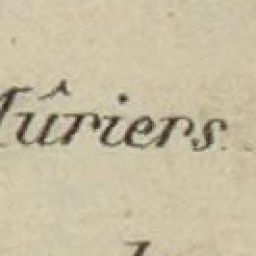 Mûriers